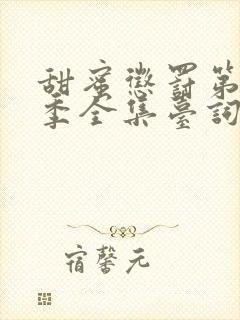 甜蜜懲罰第
季全集臺詞
宿馨元